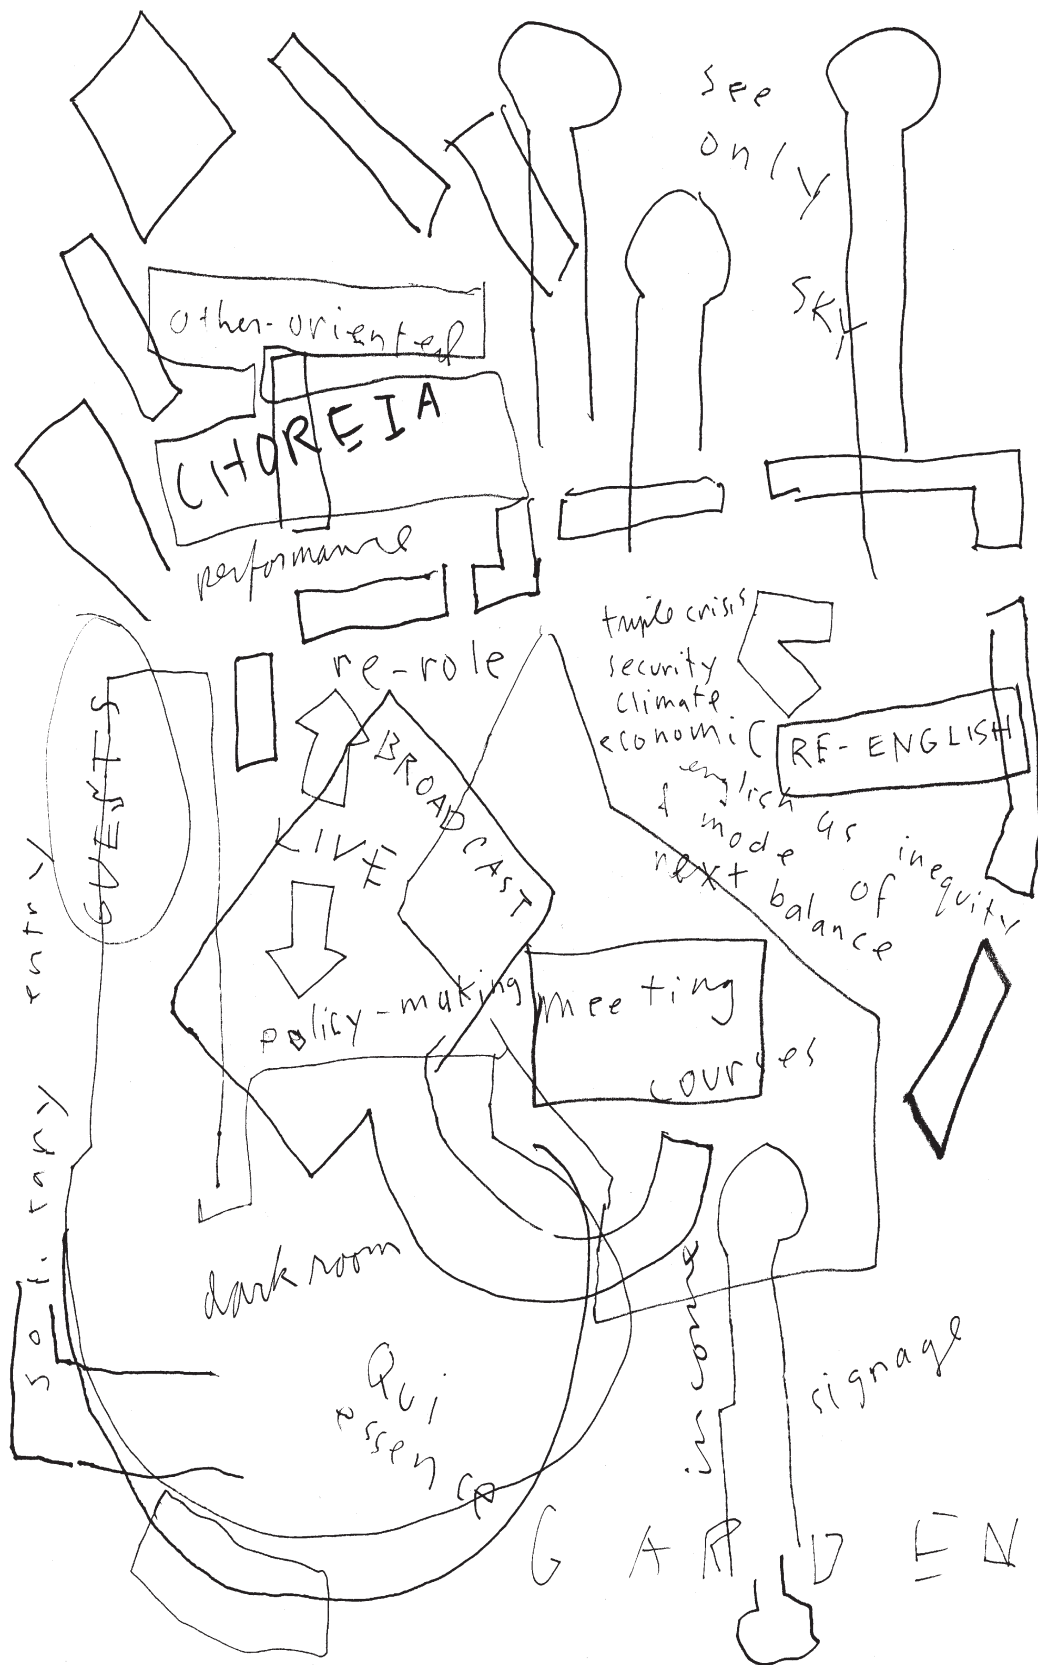 see
only
sky
other-oriented
CHOREIA
performance
re-role
triple crisis
security
climate
economic
RE-ENGLISH
english as inequity
& mode of
next balance
GUESTS
BROADCAST
LIVE
policy-making
meeting
courses
solitary entry
darkroom
Qui
essence
income
signage
GARDEN